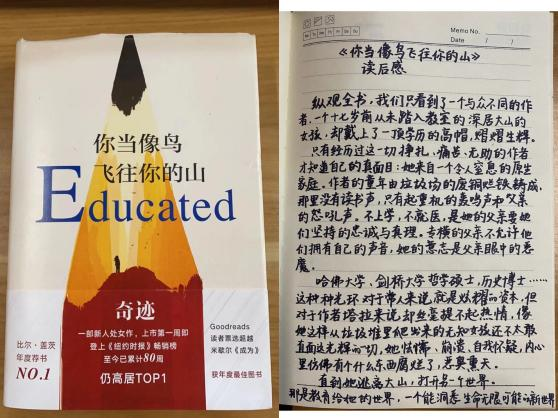 你当像鸟
飞往你的山
Educated
奇迹
一部新人处女作,上市第一周即
登上《纽约时报》畅销榜
至今已累计80周
仍高居TOP1
比尔·盖茨
年度荐书
NO.1
Goodreads
读者票选超越
米歇尔《成为》
获年度最佳图书
Memo No.
Mo Tu We Th Fr Sa Su
Date / /
《你当像鸟飞往你的山》
读后感
纵观全书,我们只看到了一个与众不同的作
者,一个十七岁前从未踏入教室的深居大山的
女孩,却戴上了一顶学历的高帽,熠熠生辉。
只有经历过这一切挣扎、痛苦、无助的作者
才知道自己的真面目:她来自一个令人窒息的原生
家庭。作者的童年由垃圾场的废铜烂铁铸成,
那里没有读书声,只有起重机的轰鸣声和父亲
的怒吼声。不上学,不就医,是她的父亲要她
们坚持的忠诚与真理。专横的父亲不允许他
们拥有自己的声音,她的意志是父亲眼中的恶
魔。
哈佛大学、剑桥大学哲学硕士,历史博士……
这种种光环对于常人来说,就是炫耀的资本,但
对于作者塔拉来说却是提不起热情,像
她这样从垃圾堆里爬出来的无知女孩还不太敢
直面这光辉的一切,她怯懦、崩溃、自我怀疑,内心
里仿佛有个什么东西腐烂了,恶臭熏天。
直到她逃离大山,打开另一个世界。
那是教育给她的世界,一个能洞悉生命无限可能的新世界